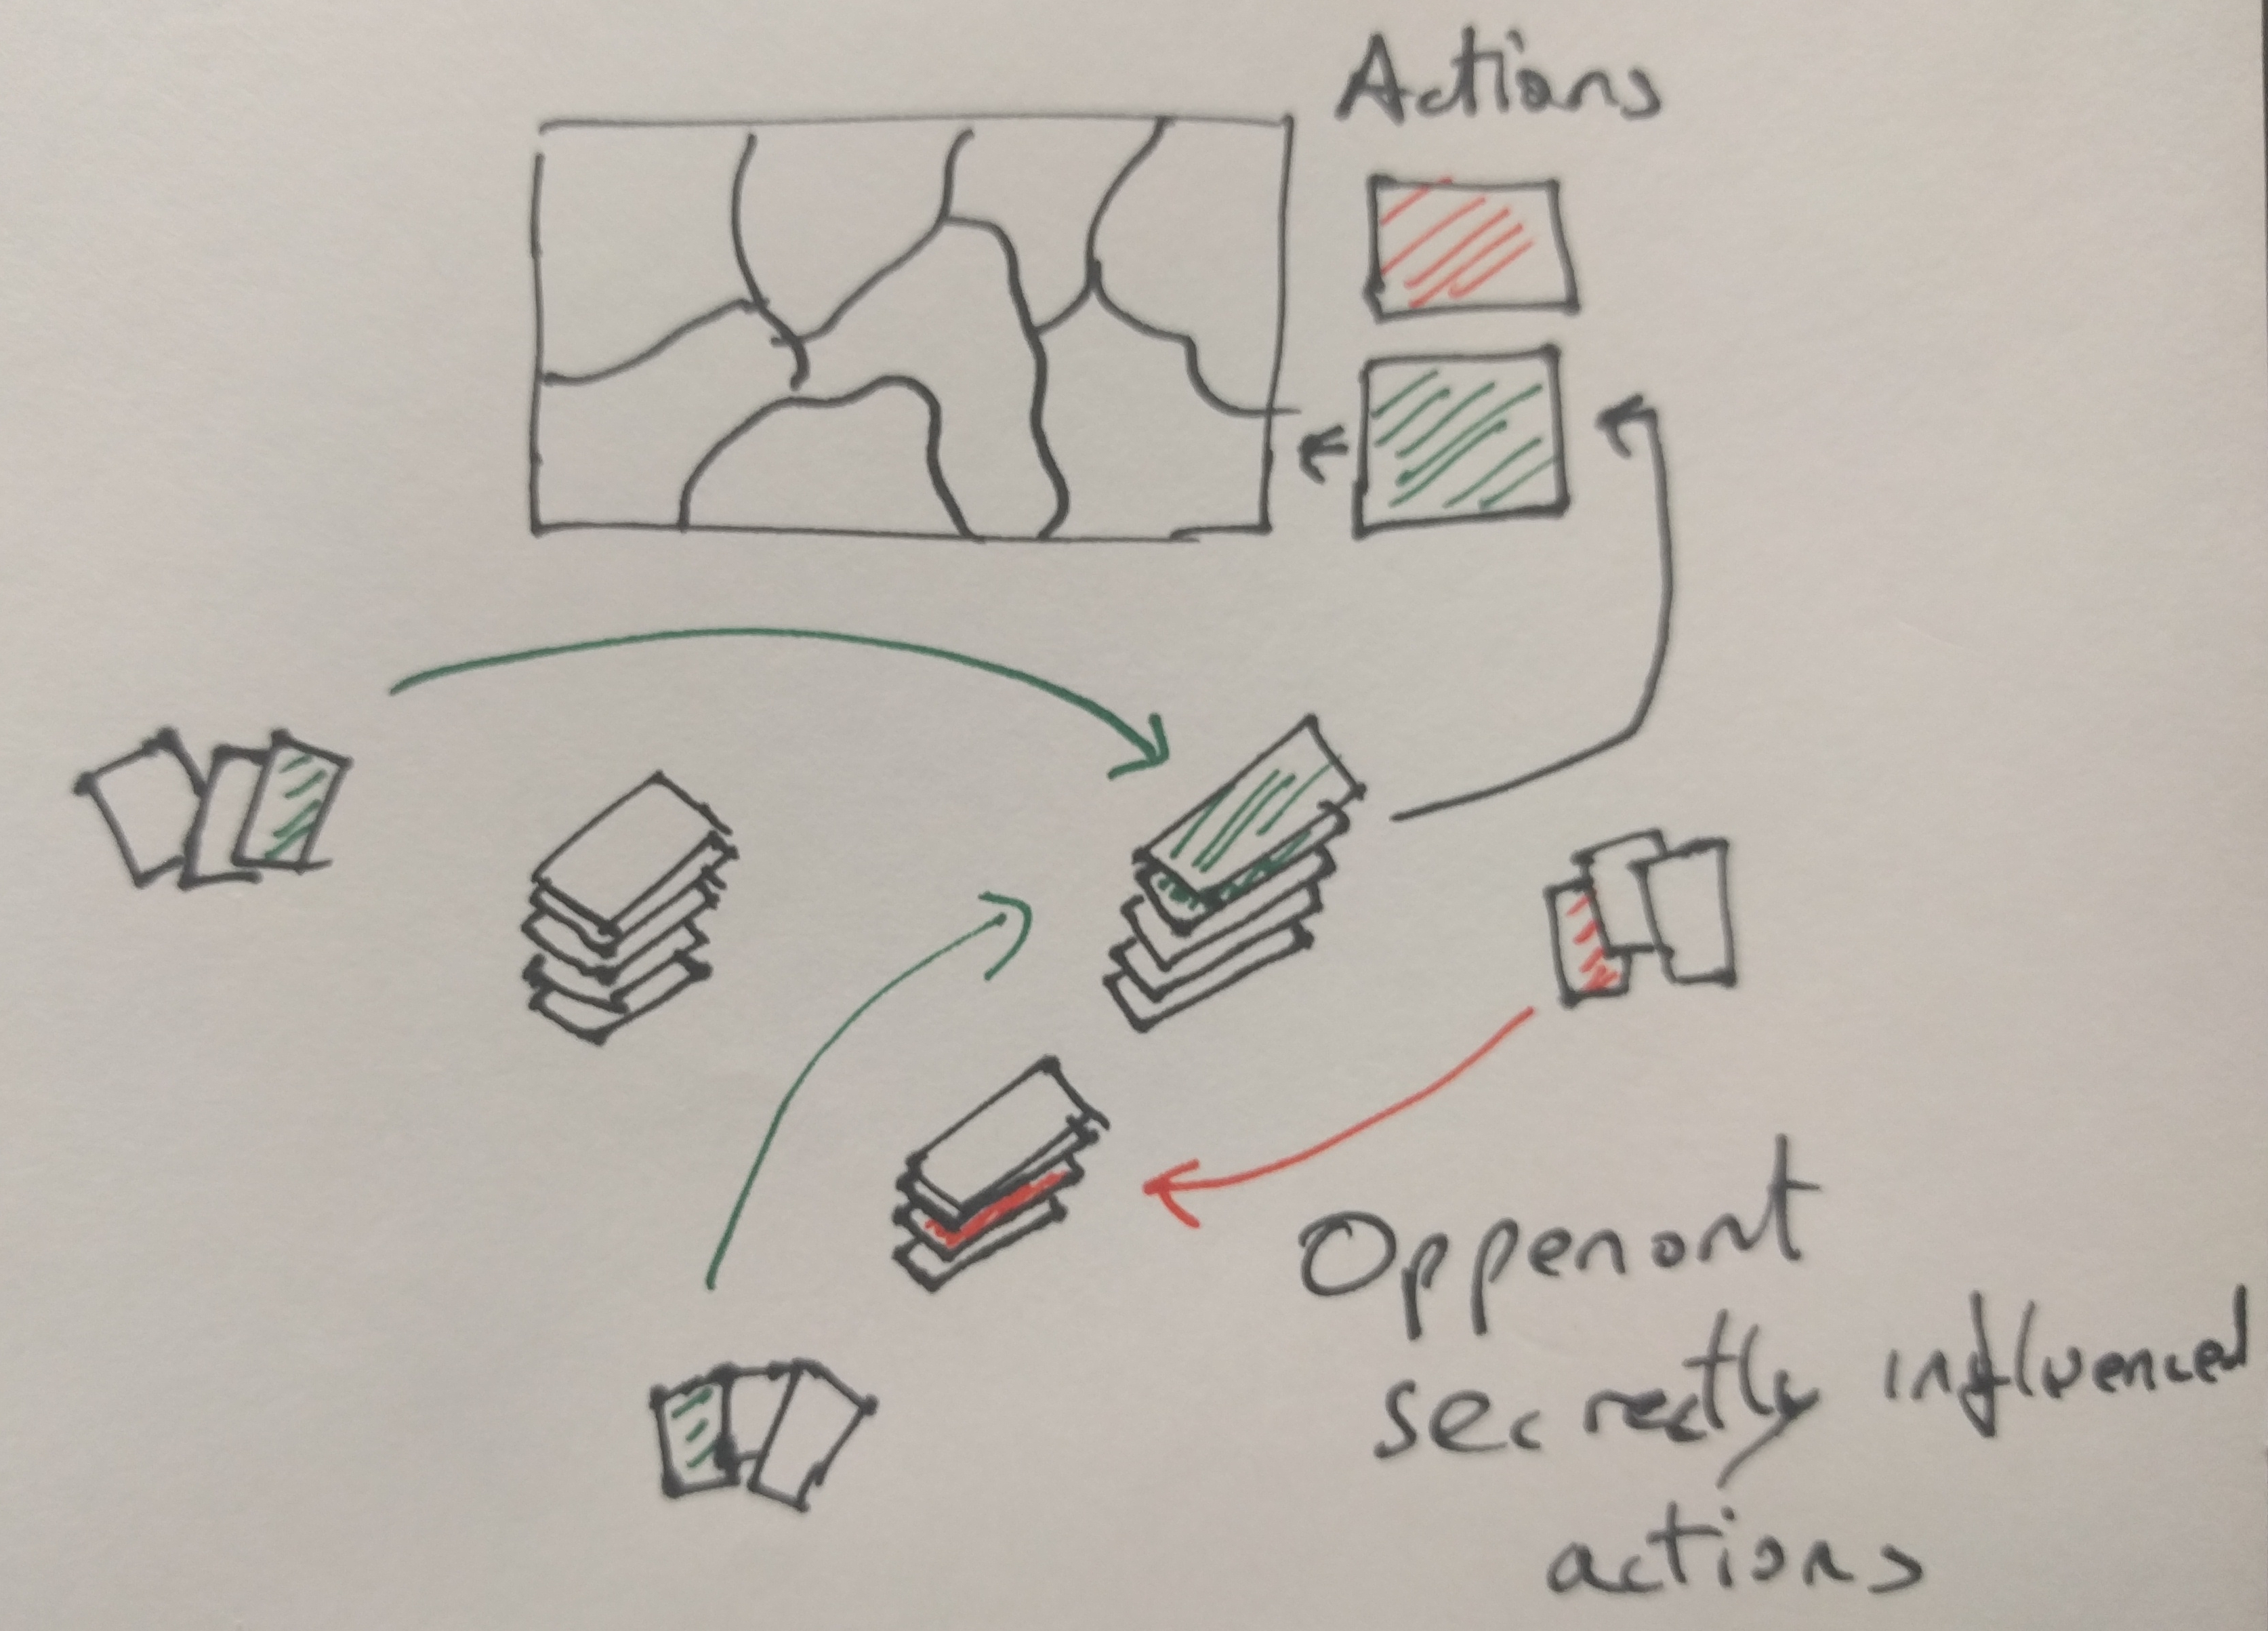 Actions
Oppenont
secrectly influenced
actions